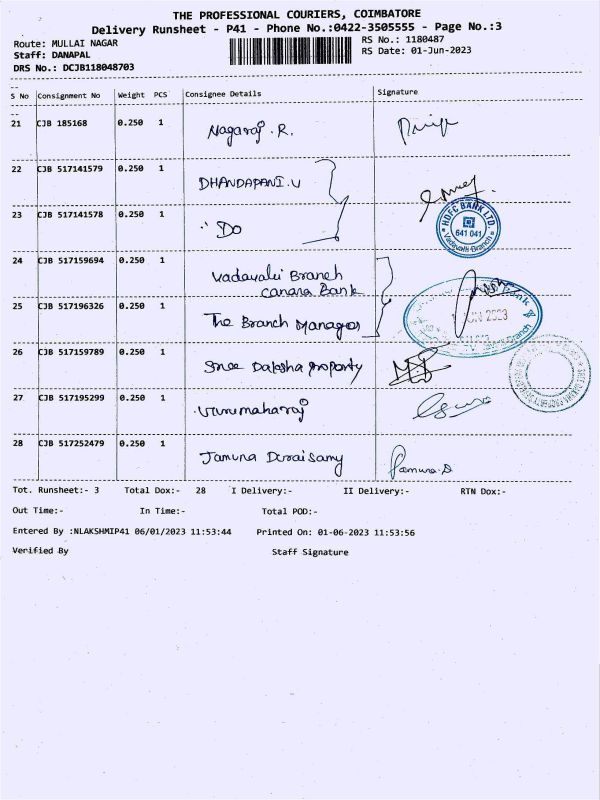 THE PROFESSIONAL COURIERS, COIMBATORE
Delivery Runsheet - P41 - Phone No.:0422-3505555 - Page No.:3
Route: MULLAI NAGAR RS No.: 1180487
Staff: DANAPAL RS Date: 01-Jun-2023
DRS No.: DCJB118048703
S No Consignment No Weight PCS Consignee Details Signature
21 CJB 185168 0.250 1 Nagaraj .R.
22 CJB 517141579 0.250 1 DHANDAPANI.V
23 CJB 517141578 0.250 1 " Do
HDFC BANK LTD.
641 041
Vadavalli Branch
24 CJB 517159694 0.250 1 Vadavalli Branch
Canara Bank
25 CJB 517196326 0.250 1 The Branch Manager
JUN 2023
26 CJB 517159789 0.250 1 Sree Daksha Property
27 CJB 517195299 0.250 1
28 CJB 517252479 0.250 1 Jamuna Duraisamy Jamuna.D
Tot. Runsheet:- 3 Total Dox:- 28 I Delivery:- II Delivery:- RTN Dox:-
Out Time:- In Time:- Total POD:-
Entered By :NLAKSHMIP41 06/01/2023 11:53:44 Printed On: 01-06-2023 11:53:56
Verified By Staff Signature